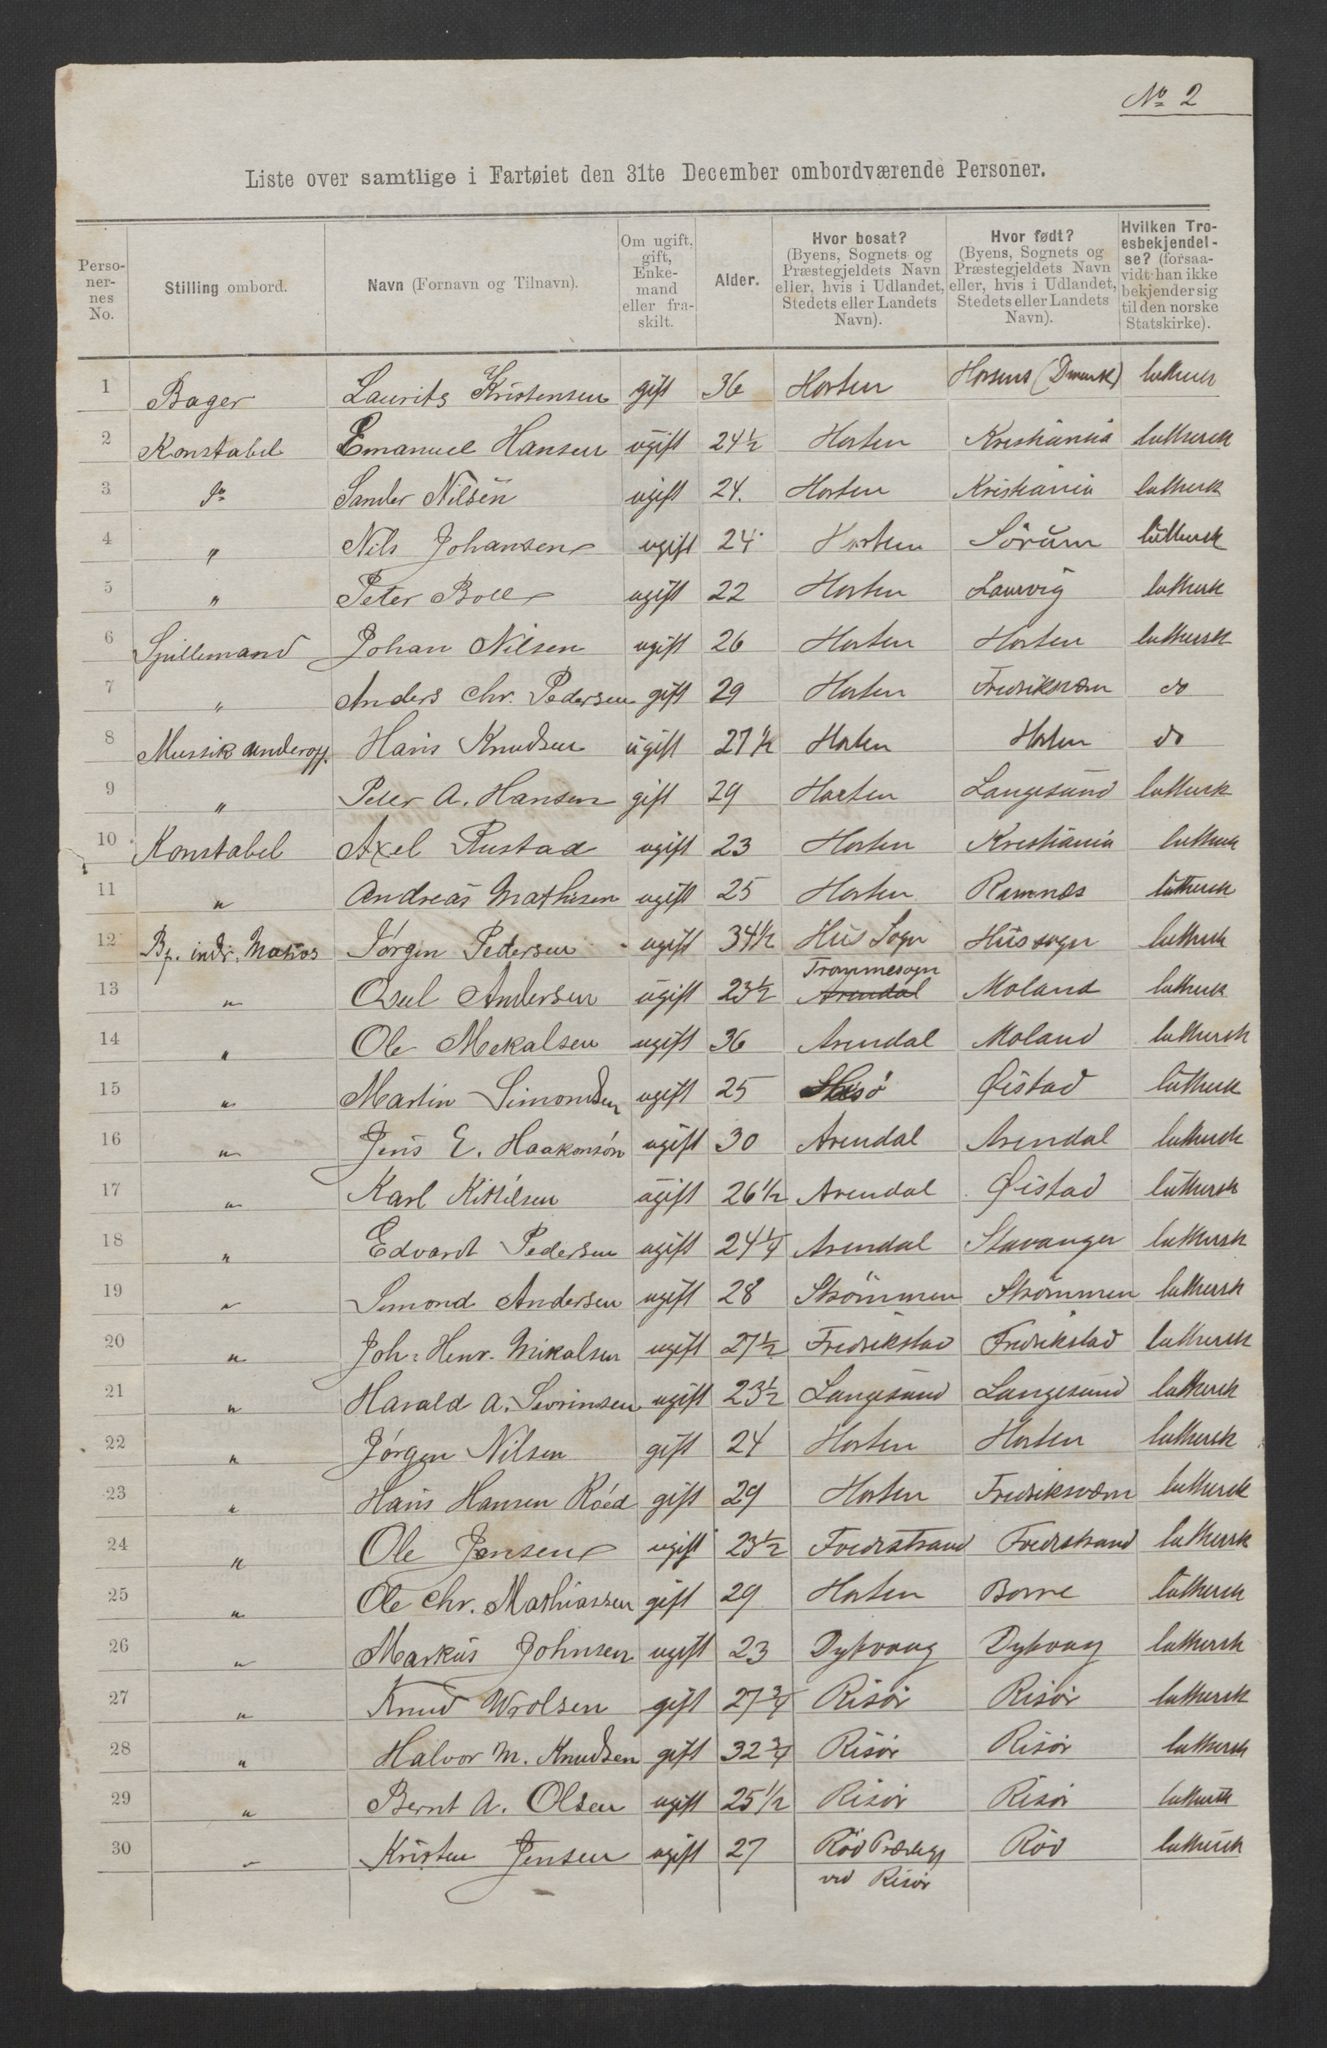 No 2
Liste over samtlige i Fartøiet den 31te December ombordværende Personer.
Perso-
ner-
nes
No.
Stilling ombord.
Navn (Fornavn og Tilnavn).
Om ugift,
gift,
Enke-
mand
eller fra-
skilt.
Alder.
Hvor bosat?
(Byens, Sognets og
Præstegjeldets Navn
eller, hvis i Udlandet,
Stedets eller Landets
Navn).
Hvor født?
(Byens, Sognets og
Præstegjeldets Navn
eller, hvis i Udlandet,
Stedets eller Landets
Navn).
Hvilken Tro-
esbekjendel-
se? (forsaa-
vidt han ikke
bekjender sig
til den norske
Statskirke).
1 Bager Laurits Kristensen gift 36 Horten Horsens (Dmark) luthersk
2 Konstabel Emanuel Hansen ugift 24½ Horten Kristiania luthersk
3 do Sander Nilsen ugift 24. Horten Kristiania luthersk
4 " Nils Johansen ugift 24 Horten Sörum luthersk
5 " Peter Boll ugift 22 Horten Laurvig luthersk
6 Spillemand Johan Nilsen ugift 26 Horten Horten luthersk
7 " Anders Chr. Pedersen gift 29 Horten Fredriksværn do
8 Mussik underoff. Hans Knudsen ugift 27½ Horten Horten do
9 " Peter A. Hansen gift 29 Horten Langesund luthersk
10 Konstabel Axel Rustad ugift 23 Horten Kristiania luthersk
11 " Andreas Mathisen ugift 25 Horten Ramnæs luthersk
12 Bf. indr. Matros Jørgen Pedersen ugift 34½ Hus Sogn Hussogn luthersk
Trommesogn
13 " Osul Andersen ugift 23½ Arendal Moland luthersk
14 " Ole Mekalsen ugift 36 Arendal Moland luthersk
15 " Martin Simondsen ugift 25 Øistad luthersk
16 " Jens E. Haakonsón ugift 30 Arendal Arendal luthersk
17 " Karl Kittilsen ugift 26½ Arendal Øistad luthersk
18 " Edvard Pedersen ugift 24¼ Arendal Stavanger luthersk
19 " Simond Andersen ugift 28 Strömmen Strömmen luthersk
20 " Joh: Henr. Mikalsen ugift 27½ Fredrikstad Fredrikstad luthersk
21 " Harald A. Sevrinsen ugift 23½ Langesund Langesund luthersk
22 " Jørgen Nilsen gift 24 Horten Horten luthersk
23 " Hans Hansen Róed gift 29 Horten Fredriksværn luthersk
24 " Ole Jensen ugift 23½ Fvedestrand Fvedestrand luthersk
25 " Ole Chr. Mathiassen gift 29 Horten Borre luthersk
26 " Markus Johnsen ugift 23 Dybvaag Dybvaag luthersk
27 " Knud Wrolsen gift 27¾ Risör Risör luthersk
28 " Halvor M. Knudsen gift 32¾ Risör Risör luthersk
29 " Bernt A. Olsen ugift 25½ Risör Risör luthersk
30 " Kristen Jensen ugift 27 Röd Rød luthersk
ved Risør